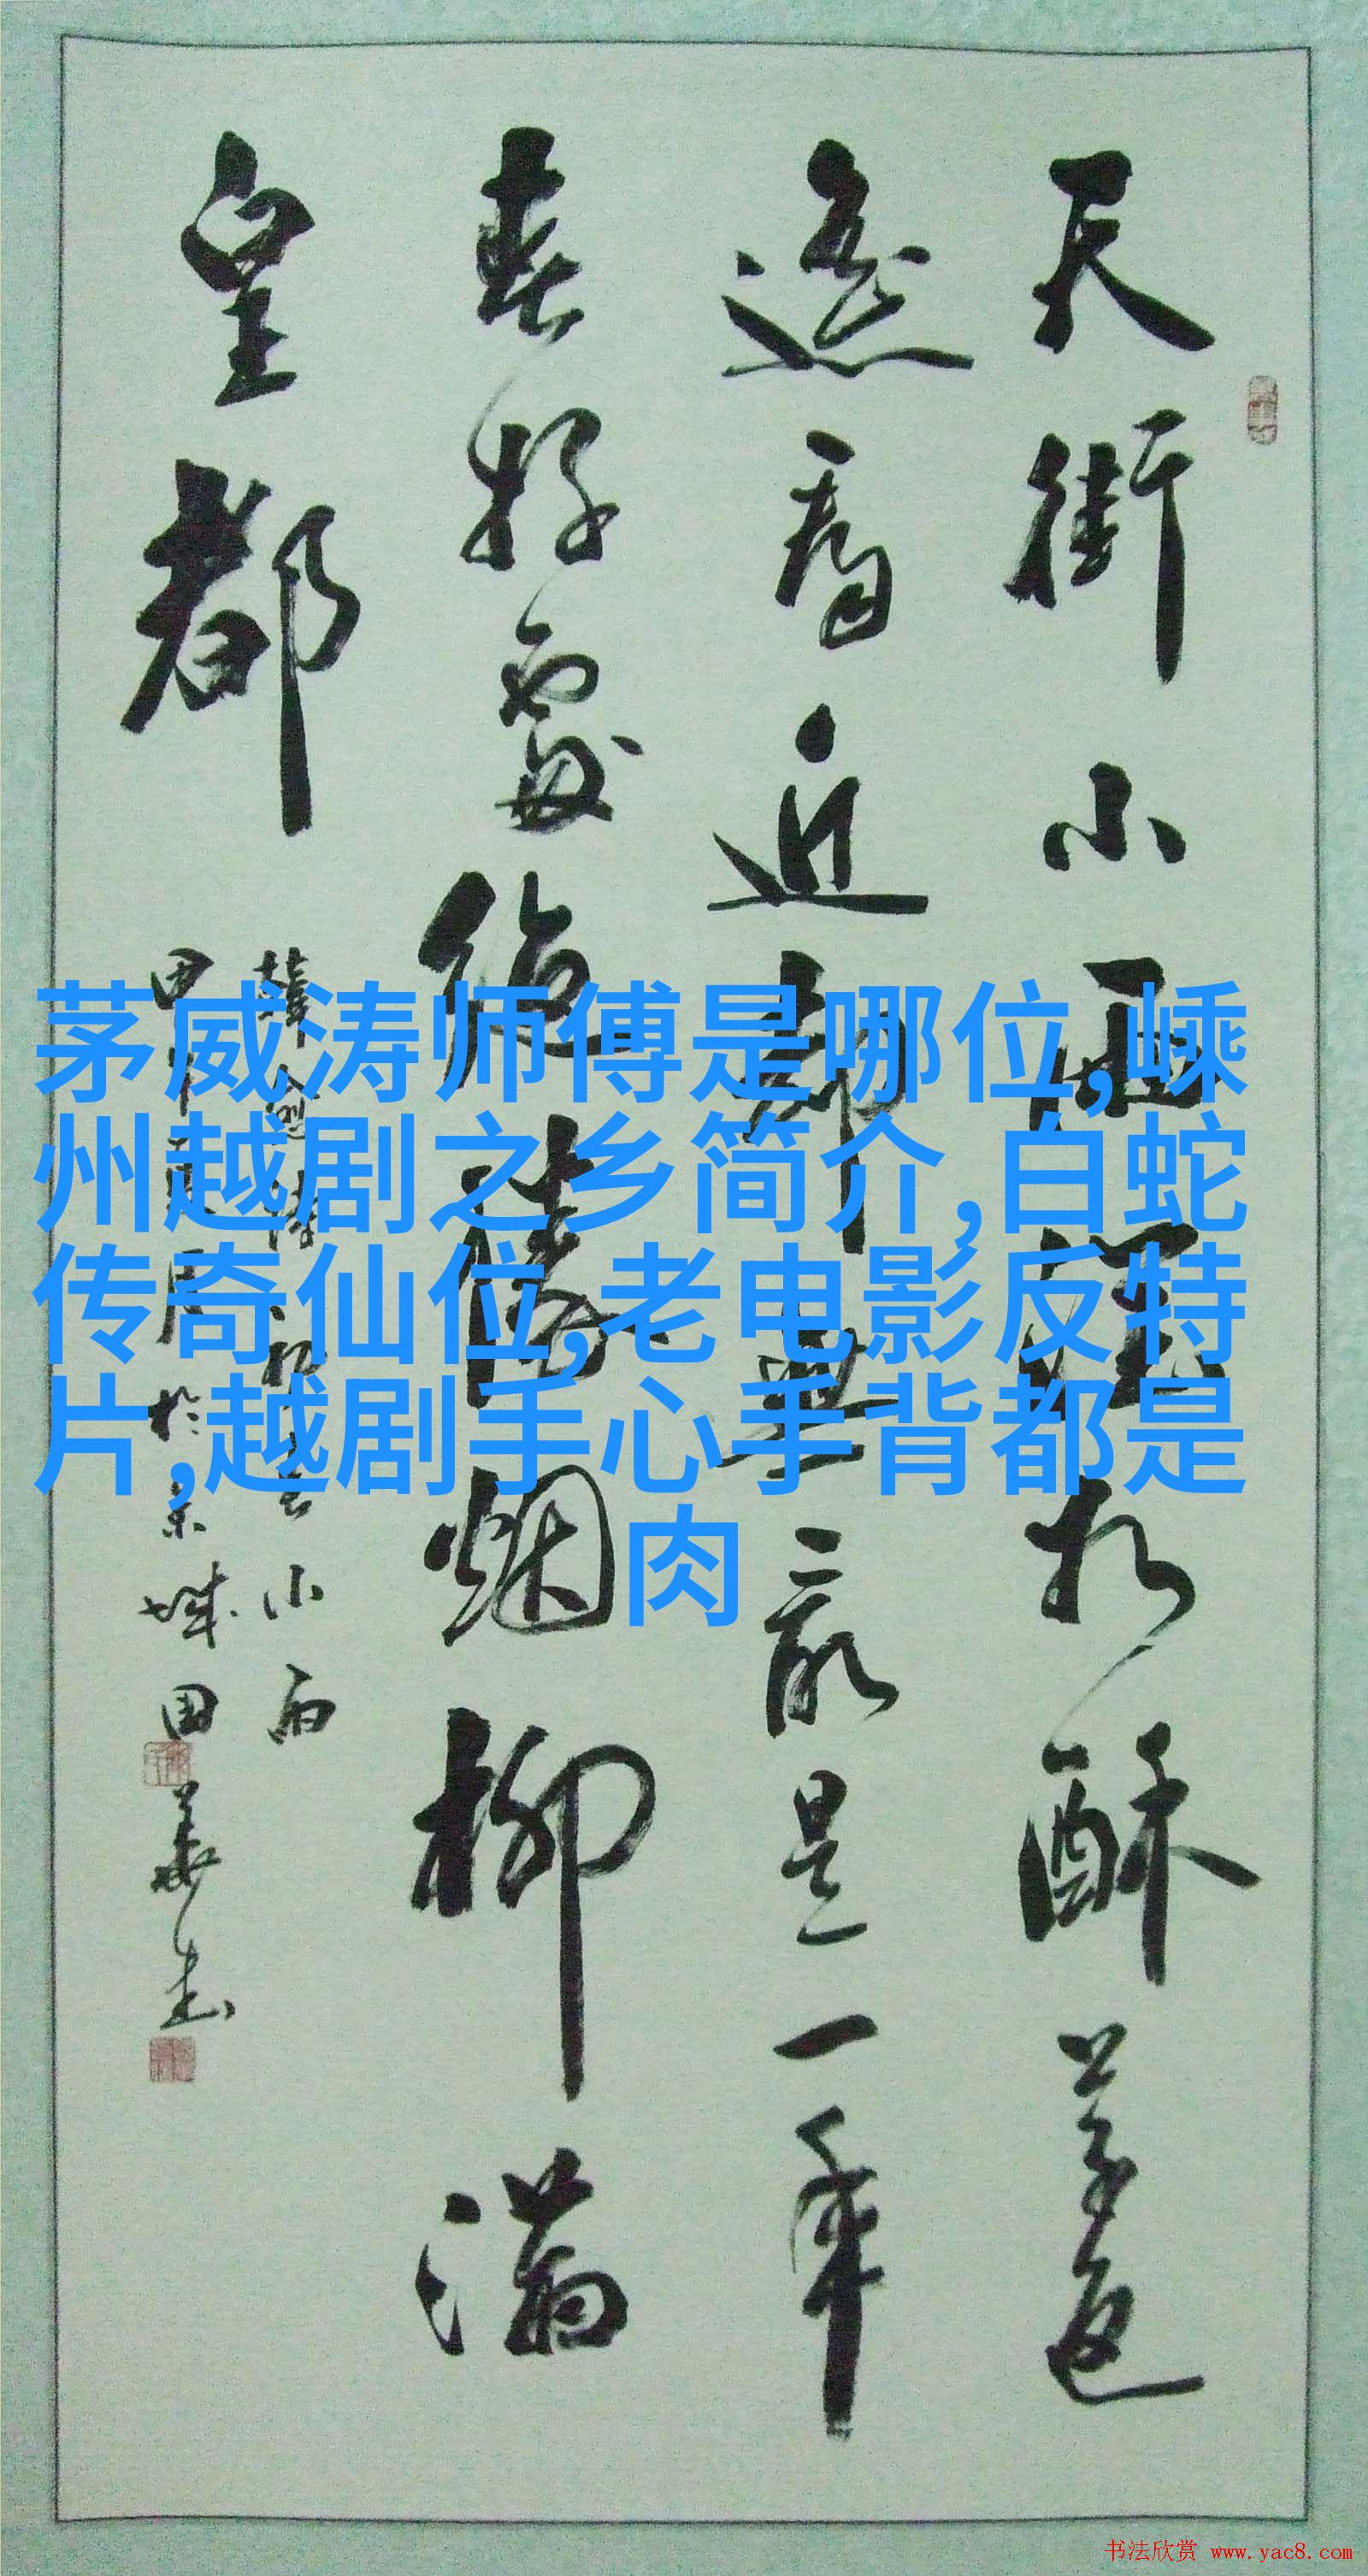 天街小雨润如酥草色
遥看近却无最是一年
春好处绝胜烟柳满
皇都
韩愈诗初春小雨
于京城国华书
茅威涛师傅是哪位,嵊
州越剧之乡简介,白蛇
传奇仙位,老电影反特
片,越剧手心手背都是
肉
书法欣赏 www.yac8.com